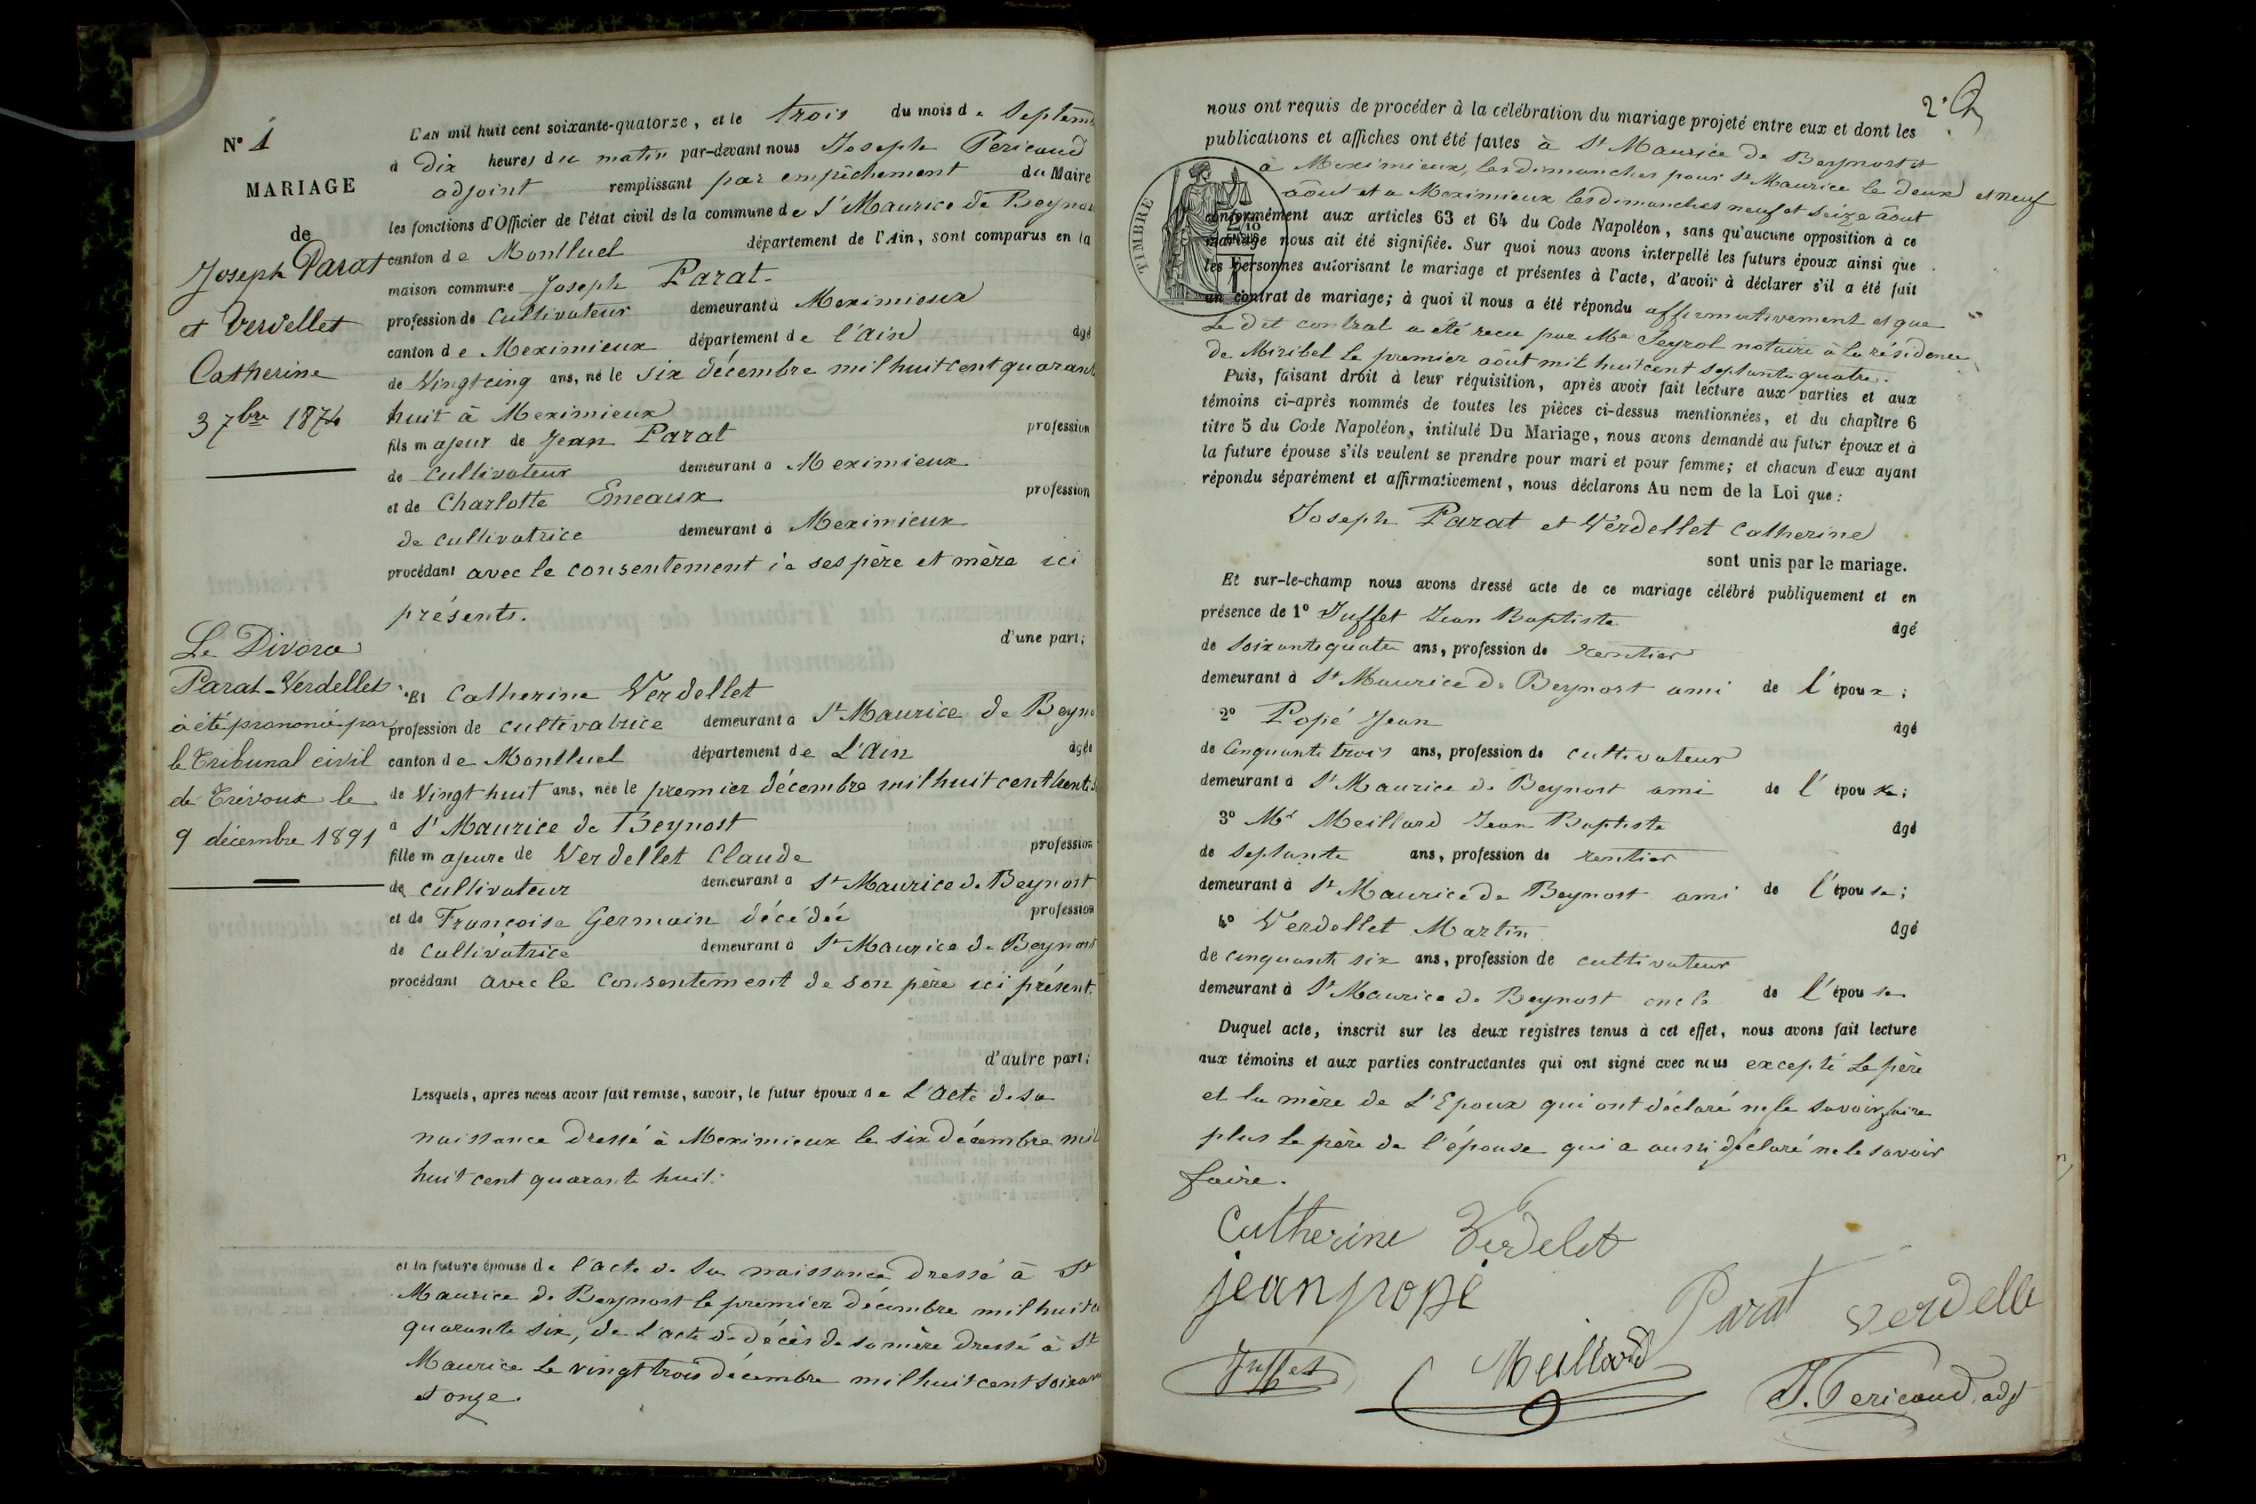 N° 1
MARIAGE
de
Joseph Parat
et Verdellet
Catherine
3 7bre 1874
Le Divorce
Parat-Verdellet
a été prononcé par
le Tribunal civil
de Trévoux le
9 décembre 1891
L'AN mil huit cent soixante-quatorze, et le trois du mois de Septem
à Dix heures du matin par-devant nous Joseph Pericaud
adjoint remplissant par empêchement du Maire
les fonctions d'Officier de l'état civil de la commune de St Maurice de Beynos
canton de Montluel département de l'Ain, sont comparus en la
maison commune Joseph Parat
profession de cultivateur demeurant à Meximieux
canton de Meximieux département de l'Ain âgé
de Vingt cinq ans, né le six décembre mil huit cent quarant
huit à Meximieux
fils majeur de Jean Parat profession
de cultivateur demeurant à Meximieux
et de Charlotte Emeaux profession
de cultivatrice demeurant à Meximieux
procédant avec le consentement de ses père et mère ici
présents.
d'une part;
Et Catherine Verdellet
profession de cultivatrice demeurant à St Maurice de Beyno
canton de Montluel département de L'Ain âgée
de Vingt huit ans, née le premier décembre mil huit cent
à St Maurice de Beynost
fille majeure de Verdellet Claude profession
de cultivateur demeurant à St Maurice de Beynost
et de Françoise Germain décédée profession
de cultivatrice demeurant à St Maurice de Beynost
procédant avec le consentement de son père ici présent.
d'autre part;
Lesquels, après nous avoir fait remise, savoir, le futur époux de L'acte de sa
naissance dressé à Meximieux le six décembre mil
huit cent quarante huit.
et la future épouse de l'acte de sa naissance dressé à St
Maurice de Beynost le premier décembre mil huit
quarante six, de l'acte de décès de sa mère dressé à St
Maurice le vingt trois décembre mil huit cent soixan
et onze.
2e
nous ont requis de procéder à la célébration du mariage projeté entre eux et dont les
publications et affiches ont été faites à St Maurice de Beynost et
à Meximieux, les dimanches pour St Maurice le deux et neuf
août et à Meximieux les dimanches neuf et seize août
TIMBRE
conformément aux articles 63 et 64 du Code Napoléon, sans qu'aucune opposition à ce
mariage nous ait été signifiée. Sur quoi nous avons interpellé les futurs époux ainsi que
les personnes autorisant le mariage et présentes à l'acte, d'avoir à déclarer s'il a été fait
un contrat de mariage; à quoi il nous a été répondu affirmativement et que
Le dit contrat a été recu par Me Seyrol notaire à la résidence
de Miribel le premier août mil huit cent septante quatre.
Puis, faisant droit à leur réquisition, après avoir fait lecture aux parties et aux
témoins ci-après nommés de toutes les pièces ci-dessus mentionnées, et du chapître 6
titre 5 du Code Napoléon, intitulé Du Mariage, nous avons demandé au futur époux et à
la future épouse s'ils veulent se prendre pour mari et pour femme; et chacun d'eux ayant
répondu séparément et affirmativement, nous déclarons Au nom de la Loi que:
Joseph Parat et Verdellet Catherine
sont unis par le mariage.
Et sur-le-champ nous avons dressé acte de ce mariage célébré publiquement et en
présence de 1° Juffet Jean Baptiste âgé
de soixante quatre ans, profession de rentier
demeurant à St Maurice de Beynost ami de l'époux;
2° Popé Jean âgé
de Cinquante trois ans, profession de cultivateur
demeurant à St Maurice de Beynost ami de l'épouse;
3° Mr Meillard Jean Baptiste âgé
de septante ans, profession de rentier
demeurant à St Maurice de Beynost ami de l'épouse;
4° Verdellet Martin âgé
de cinquante six ans, profession de cultivateur
demeurant à St Maurice de Beynost oncle de l'épouse
Duquel acte, inscrit sur les deux registres tenus à cet effet, nous avons fait lecture
aux témoins et aux parties contractantes qui ont signé avec nous excepté Le père
et la mère de L'Epoux qui ont déclaré ne le savoir faire
plus le père de l'épouse qui a aussi déclaré ne le savoir
faire.
Catherine Verdelet
jean pope
Parat
verdelle
Juffet
Meillard
J. Pericaud adjt